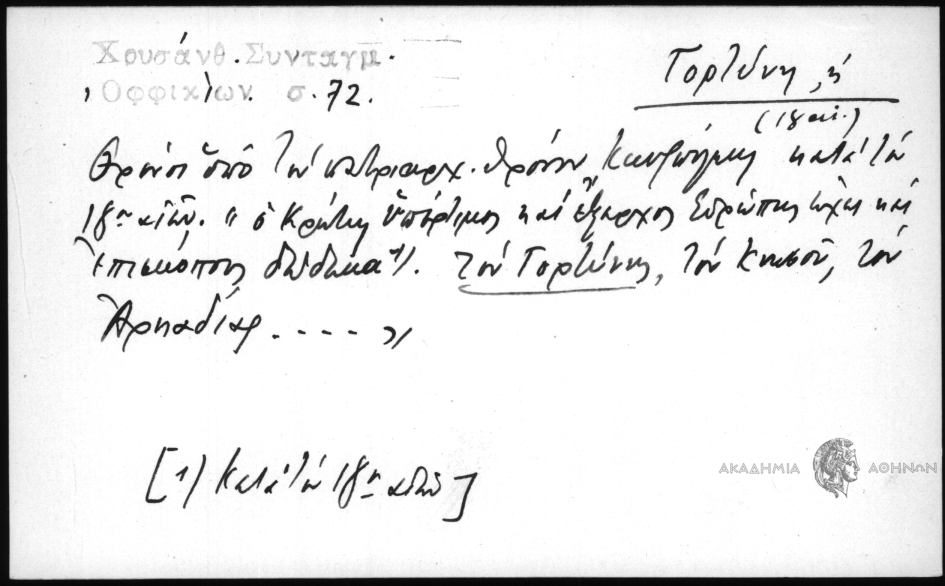 Χρυσάνθ. Συνταγμ.
Ὀφφικίων. σ. 72.
Γορτύνη, ἡ
(18 αἰ.)
Θρόνοι ὑπό τόν πατριαρχ. θρόνον Κωνσ/πόλεως κατά τόν
18ον αἰῶν. " ὁ Κρήτης ὑπέρτιμος καί ἔξαρχος Εὐρώπης ἔχει καί
ἐπισκόπους δώδεκα 1). τόν Γορτύνης, τόν Κνωσοῦ, τόν
Ἀρκαδίας . - - - - "
[1) κατά τόν 18ον αἰῶν]
ΑΚΑΔΗΜΙΑ ΑΘΗΝΩΝ